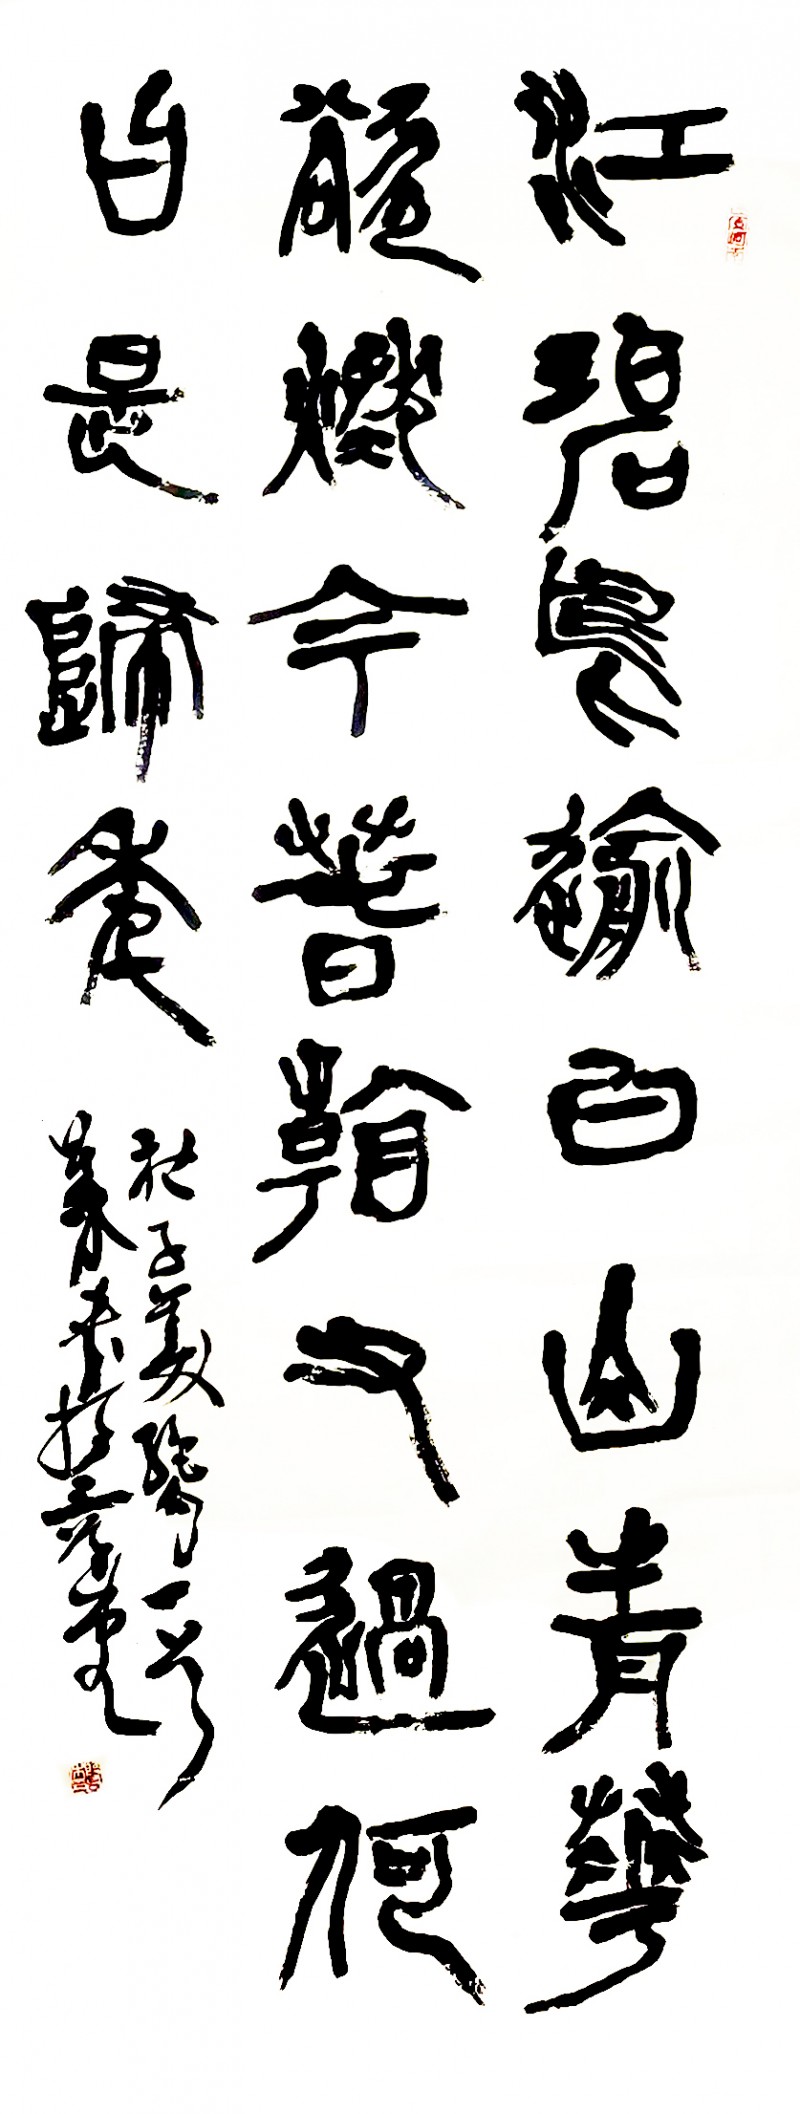 江碧鳥逾白山青華
欲燃今春看又過何
日是歸年
杜子美絕句一首